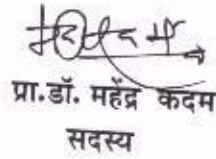 प्रा.डॉ. महेंद्र कदम
सदस्य